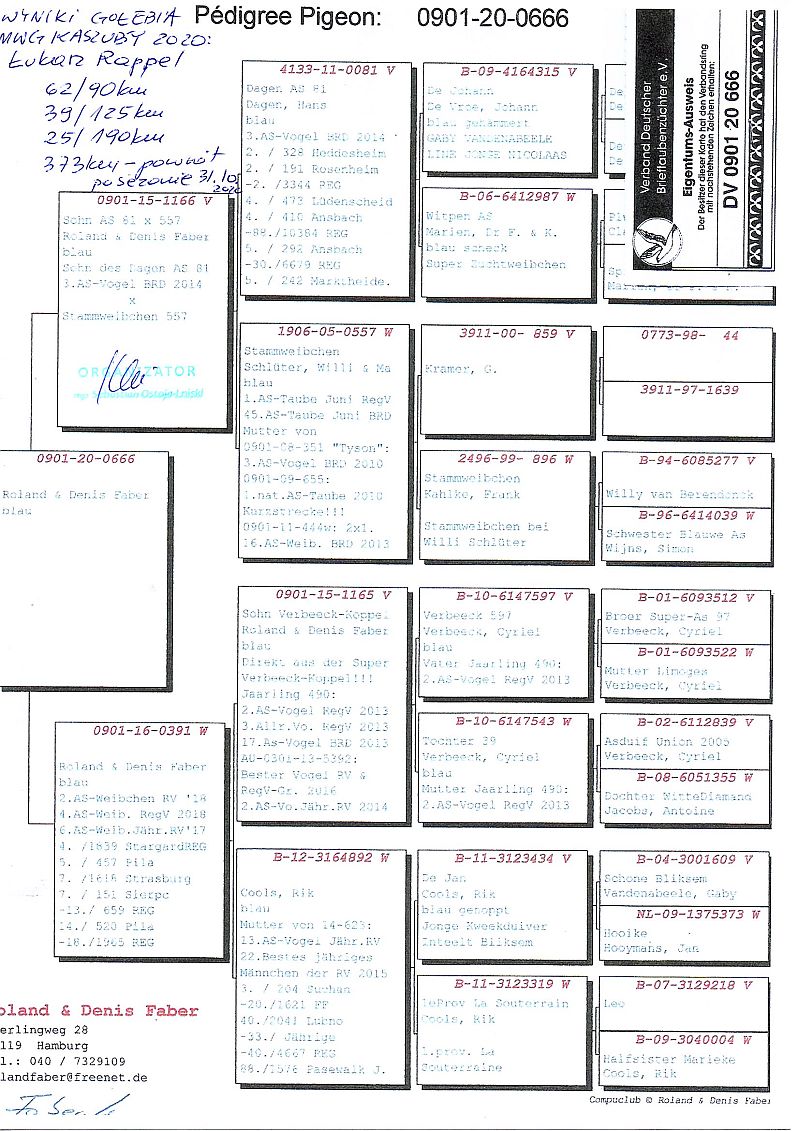 WYNIKI GOŁĘBIA
MWG KASZUBY 2020:
Łukasz Rappel
62/90km
39/125km
25/190km
373km - powrót
po sezonie 31.10
2020
Pédigree Pigeon: 0901-20-0666
Verband Deutscher
Brieftaubenzüchter e.V.
Eigentums-Ausweis
Der Besitzer dieser Karte hat den Verbandsring
mit nachstehenden Zeichen erhalten:
DV 0901 20 666
0901-15-1166 V
Sohn AS 81 x 557
Roland & Denis Faber
blau
Sohn des Dagen AS 81
3.AS-Vogel BRD 2014
x
Stammweibchen 557
ORGANIZATOR
mgr Sebastian Ostoja-Lniski
0901-20-0666
Roland & Denis Faber
blau
0901-16-0391 W
Roland & Denis Faber
blau
2.AS-Weibchen RV '18
4.AS-Weib. RegV 2018
6.AS-Weib.Jähr.RV'17
4. /1839 StargardREG
5. / 457 Pila
7. /1618 Strasburg
7. / 151 Sierpc
-13./ 659 REG
14./ 520 Pila
-18./1965 REG
4133-11-0081 V
Dagen AS 81
Dagen, Hans
blau
3.AS-Vogel BRD 2014
2. / 328 Heddesheim
2. / 191 Rosenheim
-2. /3344 REG
4. / 473 Lüdenscheid
4. / 410 Ansbach
-88./10384 REG
5. / 292 Ansbach
-30./6679 REG
5. / 242 Marktheide.
1906-05-0557 W
Stammweibchen
Schlüter, Willi & Ma
blau
1.AS-Taube Juni RegV
45.AS-Taube Juni BRD
Mutter von
0901-08-351 "Tyson":
3.AS-Vogel BRD 2010
0901-09-655:
1.nat.AS-Taube 2010
Kurzstrecke!!!
0901-11-444w: 2x1.
16.AS-Weib. BRD 2013
0901-15-1165 V
Sohn Verbeeck-Koppel
Roland & Denis Faber
blau
Direkt aus der Super
Verbeeck-Koppel!!!
Jaarling 490:
2.AS-Vogel RegV 2013
3.Allr.Vo. RegV 2013
17.As-Vogel BRD 2013
AU-0301-13-5392:
Bester Vogel RV &
RegV-Gr. 2016
2.AS-Vo.Jähr.RV 2014
B-12-3164892 W
Cools, Rik
blau
Mutter von 14-623:
13.AS-Vogel Jähr.RV
22.Bestes jähriges
Männchen der RV 2015
3. / 204 Suchan
-20./1621 FF
40./2041 Lubno
-33./ Jährige
-40./4667 REG
88./1576 Pasewalk J.
B-09-4164315 V
De Johann
De Vroe, Johann
blau gehämmert
GABY VANDENABEELE
LINE JONGE NICOLAAS
B-06-6412987 W
Witpen AS
Marien, Dr F. & K.
blau scheck
Super Zuchtweibchen
3911-00- 859 V
Kramer, G.
2496-99- 896 W
Stammweibchen
Kahlke, Frank
Stammweibchen bei
Willi Schlüter
B-10-6147597 V
Verbeeck 597
Verbeeck, Cyriel
blau
Vater Jaarling 490:
2.AS-Vogel RegV 2013
B-10-6147543 W
Tochter 39
Verbeeck, Cyriel
blau
Mutter Jaarling 490:
2.AS-Vogel RegV 2013
B-11-3123434 V
De Jan
Cools, Rik
blau genoppt
Jonge Kweekduiver
Inteelt Bliksem
B-11-3123319 W
1eProv La Souterrain
Cools, Rik
1.prov. La
Souterraine
0773-98- 44
3911-97-1639
B-94-6085277 V
Willy van Berendonck
B-96-6414039 W
Schwester Blauwe As
Wijns, Simon
B-01-6093512 V
Broer Super-As 97
Verbeeck, Cyriel
B-01-6093522 W
Mutter Limoges
Verbeeck, Cyriel
B-02-6112839 V
Asduif Union 2005
Verbeeck, Cyriel
B-08-6051355 W
Dochter WitteDiamand
Jacobs, Antoine
B-04-3001609 V
Schone Bliksem
Vandenabeele, Gaby
NL-09-1375373 W
Hooike
Hooymans, Jan
B-07-3129218 V
Leo
B-09-3040004 W
Halfsister Marieke
Cools, Rik
oland & Denis Faber
erlingweg 28
119 Hamburg
l.: 040 / 7329109
landfaber@freenet.de
Compuclub © Roland & Denis Faber